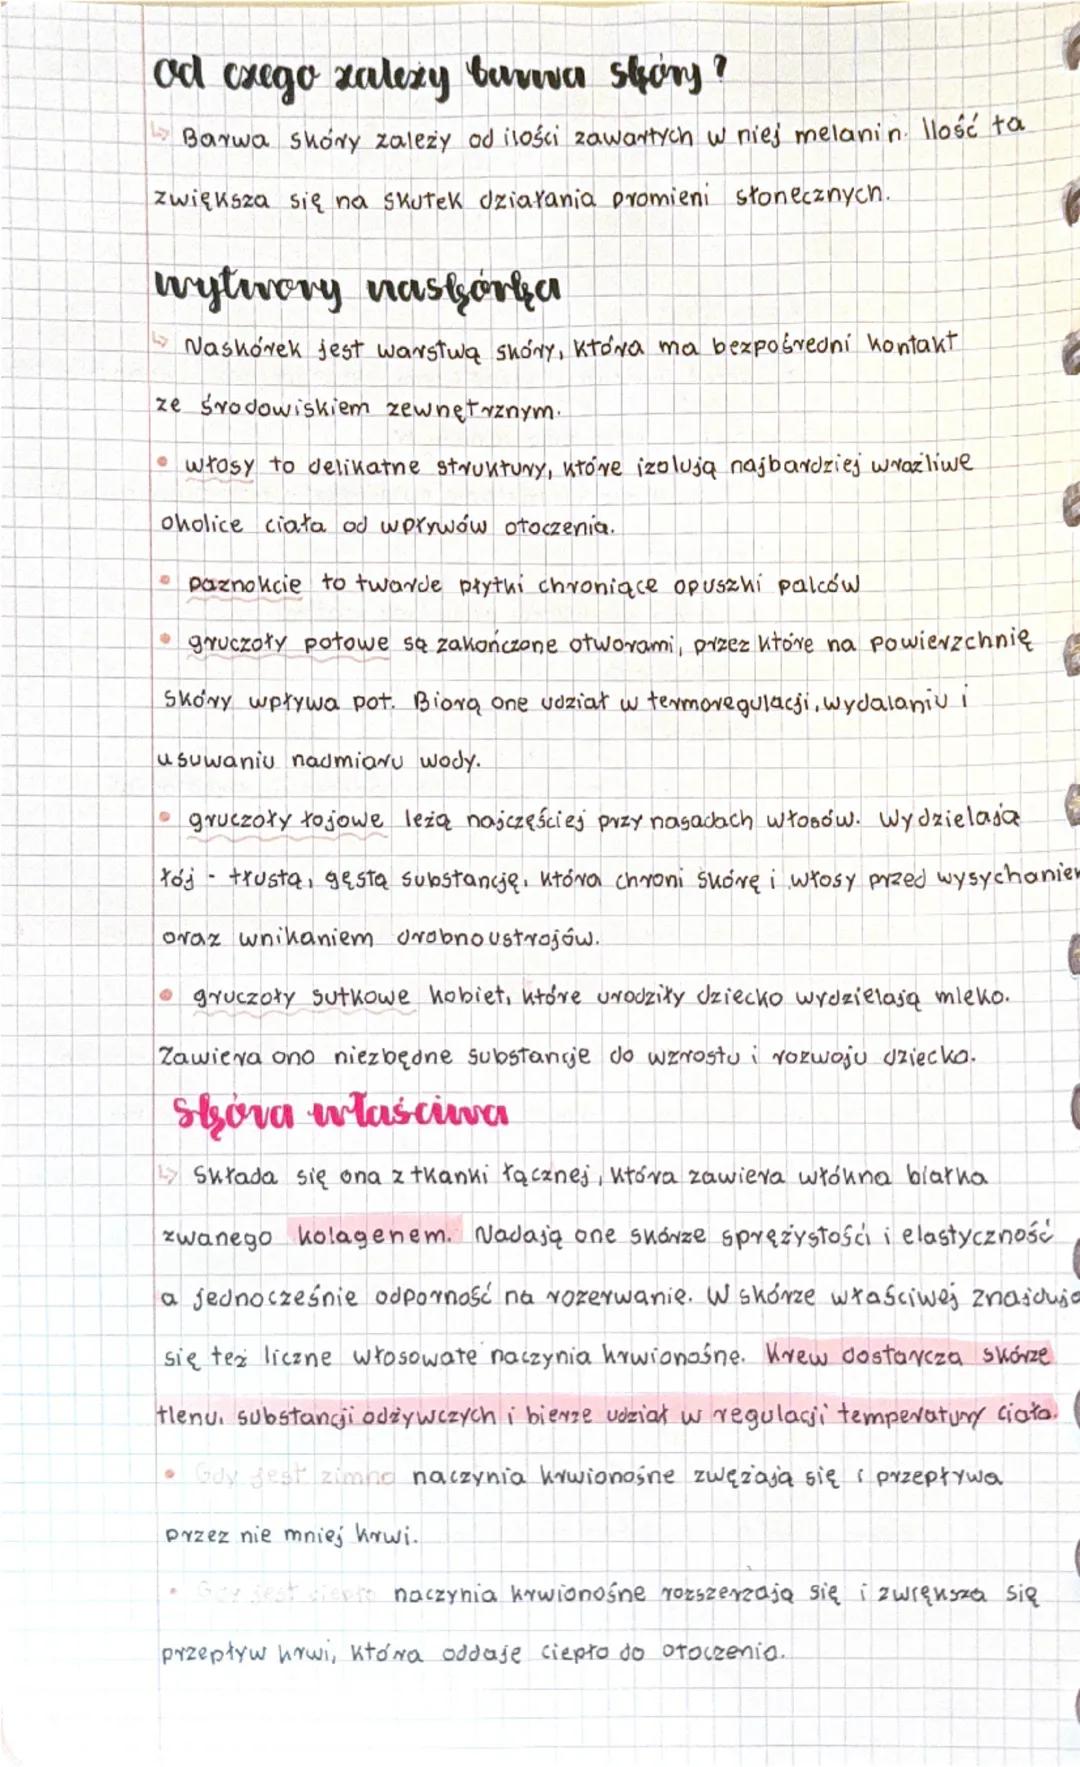 Od czego zależy barwa skóry?
↳ Barwa skóry zależy od ilości zawartych w niej melanin. Ilość ta
zwiększa się na skutek działania promieni słonecznych.
wytwory naskórka
↳ Naskórek jest warstwą skóry, która ma bezpośredni kontakt
ze środowiskiem zewnętrznym.
• włosy to delikatne struktury, które izolują najbardziej wrażliwe
okolice ciała od wpływów otoczenia.
• paznokcie to twarde płytki chroniące opuszki palców
• gruczoły potowe są zakończone otworami, przez które na powierzchnię
skóry wpływa pot. Biorą one udział w termoregulacji, wydalaniu i
usuwaniu nadmiaru wody.
• gruczoły łojowe leżą najczęściej przy nasadach włosów. Wydzielają
łój - tłustą, gęstą substancję, która chroni skórę i włosy przed wysychaniem
oraz wnikaniem drobnoustrojów.
• gruczoły sutkowe kobiet, które urodziły dziecko wydzielają mleko.
Zawiera ono niezbędne substancje do wzrostu i rozwoju dziecka.
Skóra właściwa
↳ Składa się ona z tkanki łącznej, która zawiera włókna białka
zwanego kolagenem. Nadają one skórze sprężystości i elastyczność
a jednocześnie odporność na rozerwanie. W skórze właściwej znajdują
się też liczne włosowate naczynia krwionośne. Krew dostarcza skórze
tlenu, substancji odżywczych i bierze udział w regulacji temperatury ciała.
• Gdy jest zimno naczynia krwionośne zwężają się i przepływa
przez nie mniej krwi.
• Gdy jest ciepło naczynia krwionośne rozszerzają się i zwiększa się
przepływ krwi, która oddaje ciepło do otoczenia.